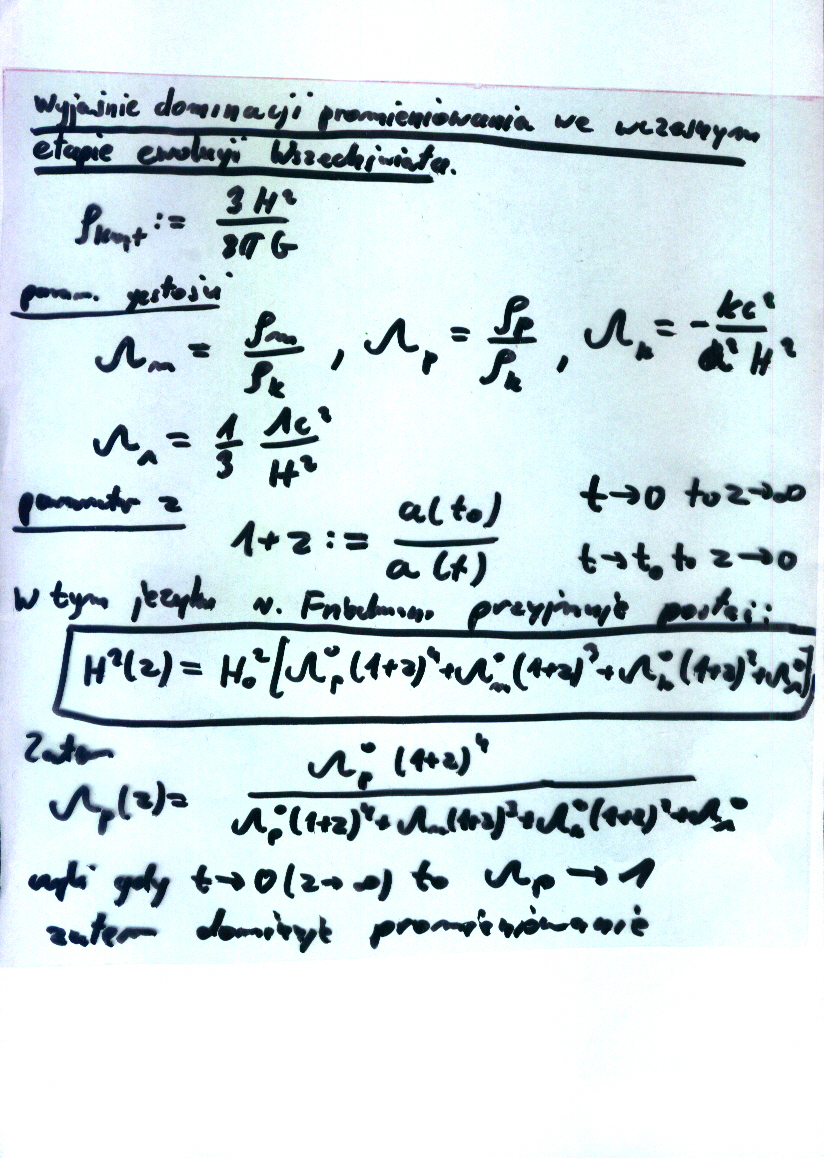 Wyjaśnie dominacji promieniowania we wczesnym
etapie ewolucji Wszechświata.
ρkryt := 3H² / 8πG
param. gęstości
Ωm = ρm / ρk , Ωp = ρp / ρk , Ωk = - kc² / a² H²
ΩΛ = 1/3 Λc² / H²
parametr z
1+z := a(t₀) / a(t)
t→0 to z→∞
t→t₀ to z→0
W tym języku r. Friedmana przyjmuje postać:
H²(z) = H₀² [Ωp⁰(1+z)⁴ + Ωm⁰(1+z)³ + Ωk⁰(1+z)² + ΩΛ⁰]
Zatem
Ωp(z) = Ωp⁰ (1+z)⁴ / Ωp⁰(1+z)⁴ + Ωm(1+z)³ + Ωk⁰(1+z)² + ΩΛ⁰
czyli gdy t→0 (z→∞) to Ωp → 1
zatem dominuje promieniowanie